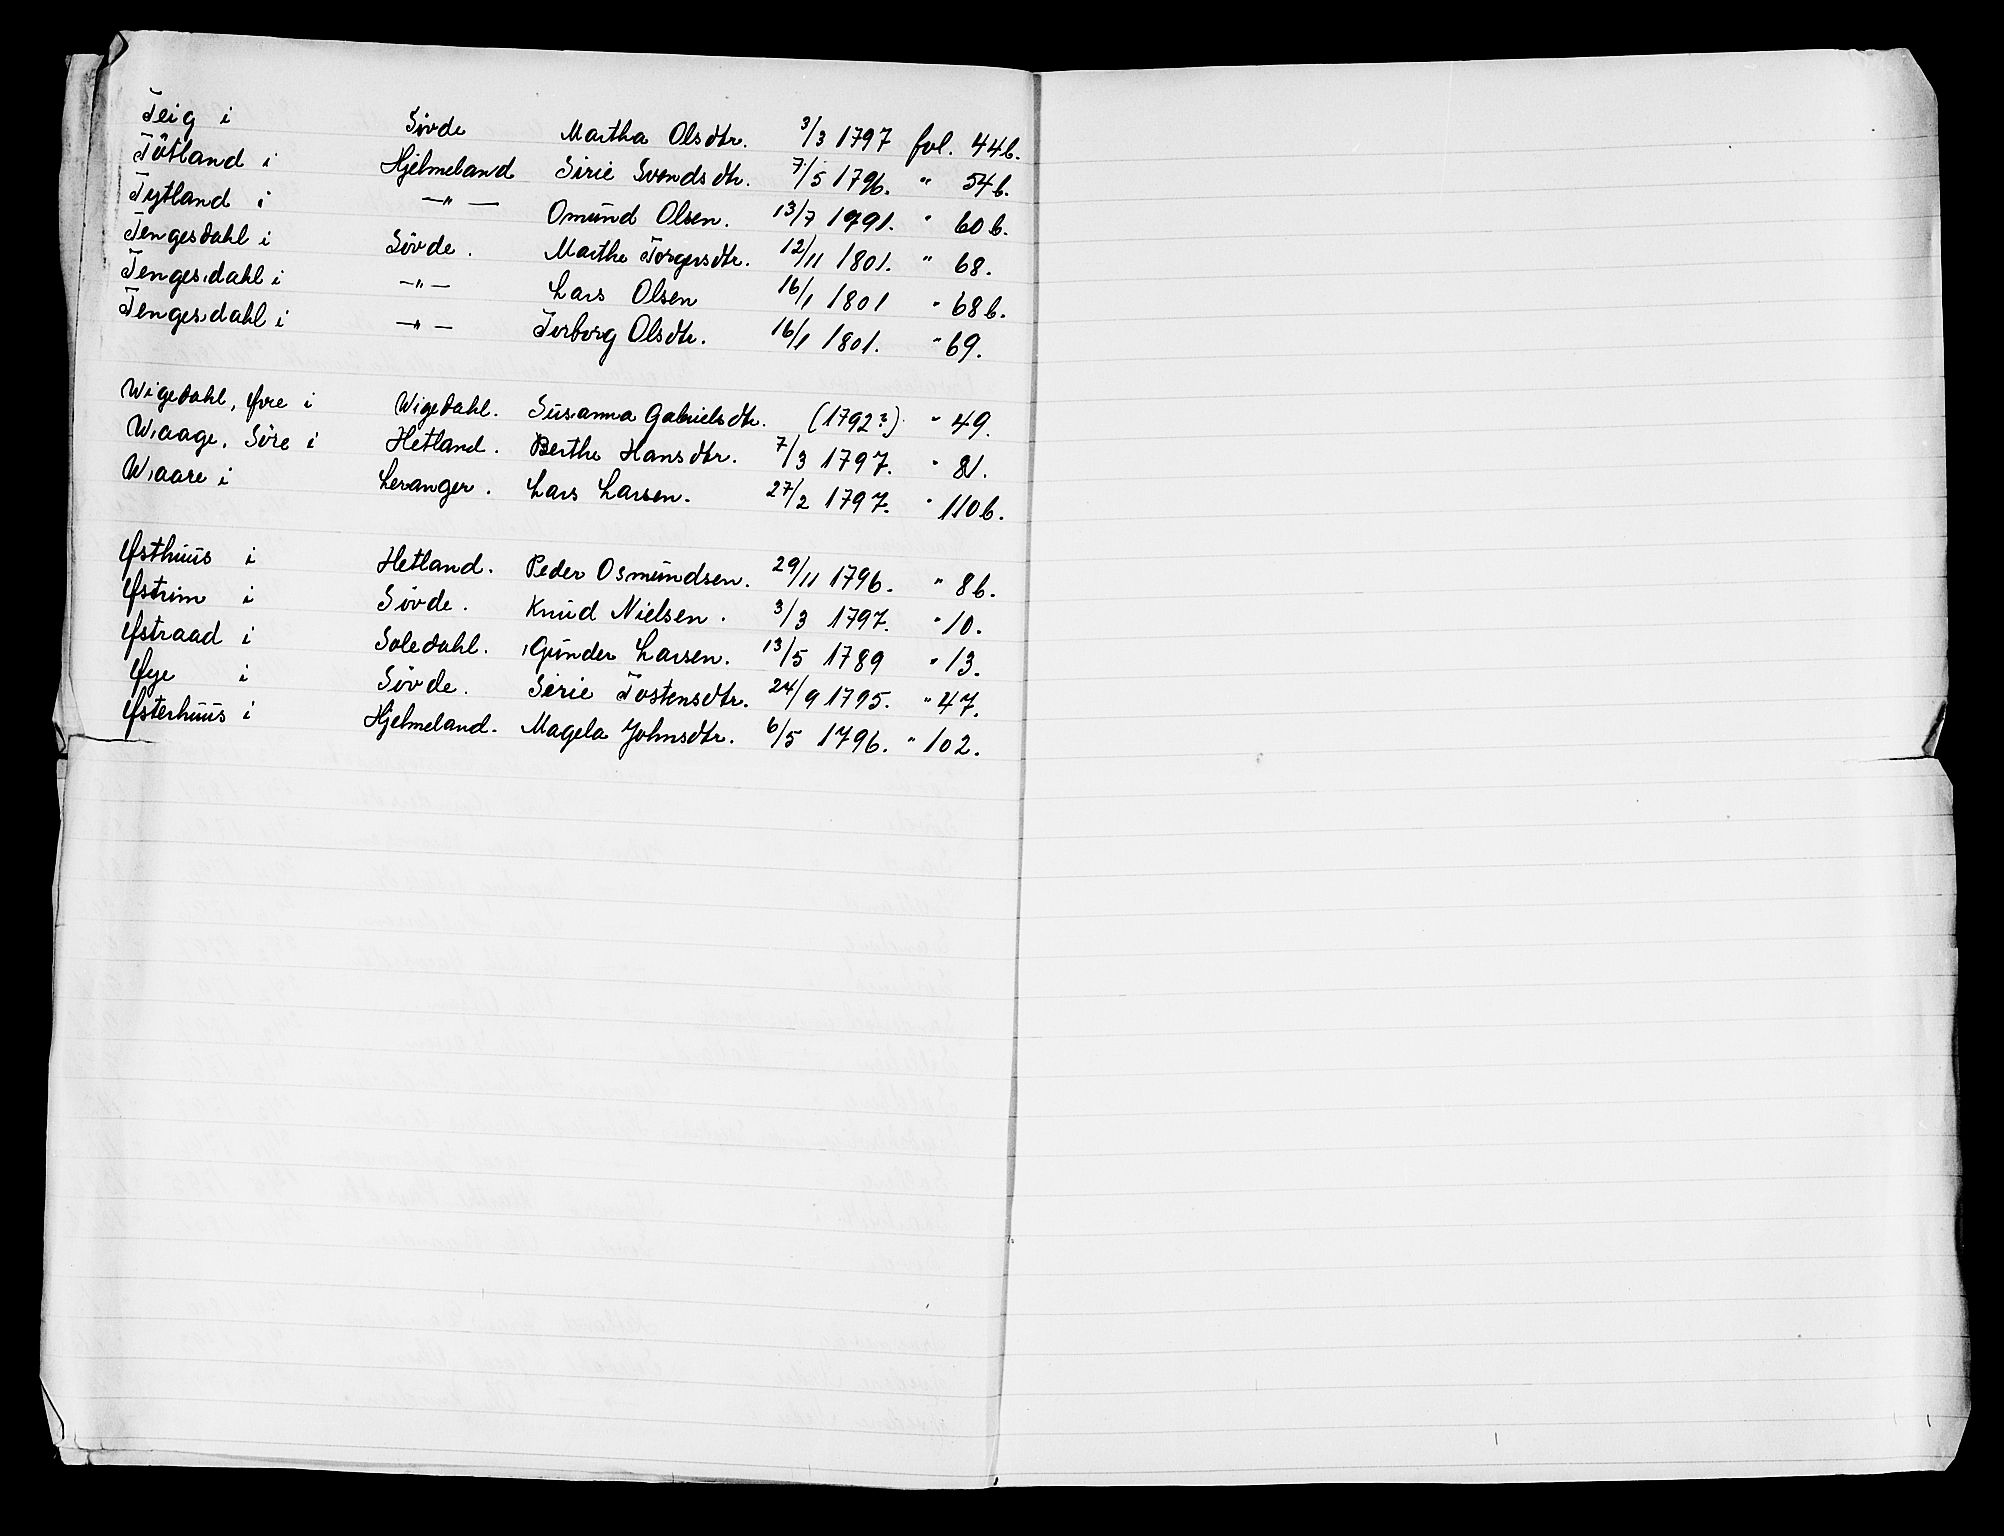 Teig i Søvde Martha Olsdtr. 3/3 1797 fol. 44b.
Tötland i Hjelmeland Sirie Svendsdtr. 7/5 1796. " 54b.
Tytland i —"— Omund Olsen. 13/7 1791. " 60b.
Tengesdahl i Søvde. Marthe Torgersdtr. 12/11 1801. " 68.
Tengesdahl i —"— Lars Olsen 16/1 1801 " 68b.
Tengesdahl i —"— Torborg Olsdtr. 16/1 1801. " 69.
Wigedahl, Øvre i Wigedahl. Susanna Gabrielsdtr. (1792?) " 49.
Waage, Søre i Hetland. Berthe Hansdtr. 7/3 1797. " 81.
Waare i Leranger. Lars Larsen. 27/2 1797. " 110b.
Østhuus i Hetland. Peder Osmundsen. 29/11 1796. " 8b.
Østrim i Søvde. Knud Nielsen. 3/3 1797. " 10.
Østraad i Soledahl. Gunder Larsen. 13/5 1789 " 13.
Øye i Søvde. Sirie Tostensdtr. 24/9 1795. " 47.
Østerhuus i Hjelmeland. Magela Johnsdtr. 6/5 1796. " 102.